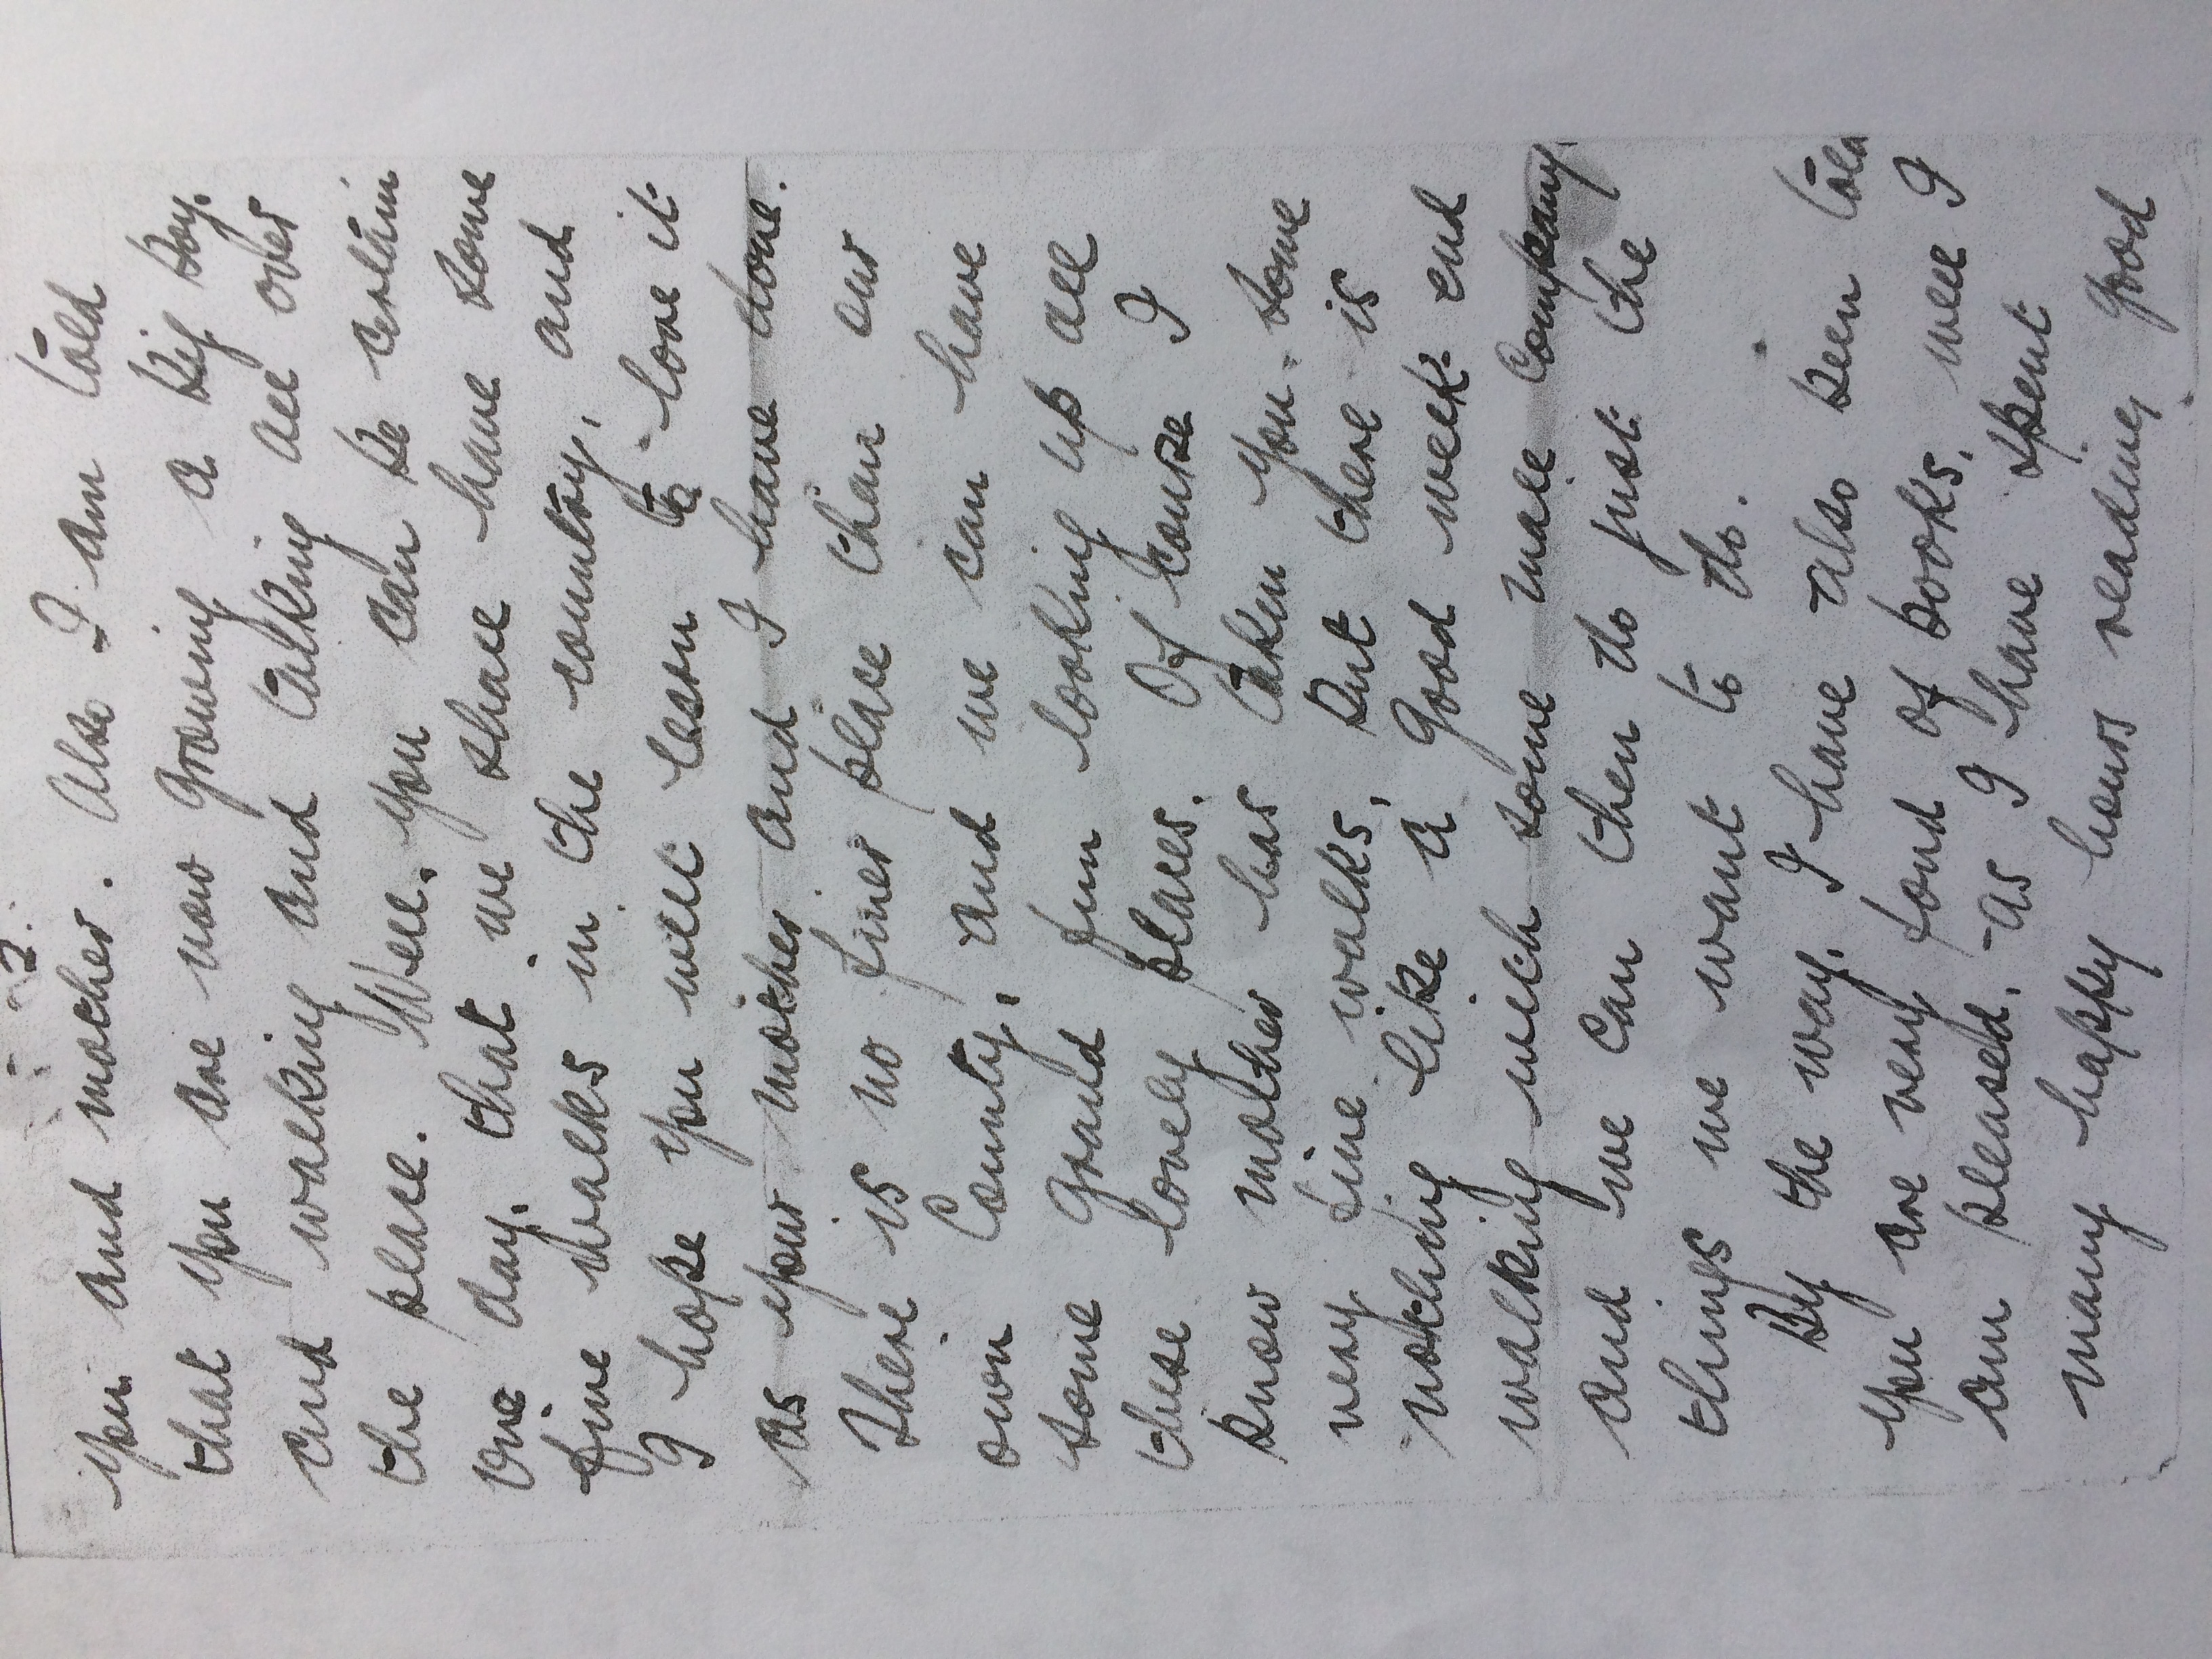 2.
you and mother. Also I am told
that you are now growing a big boy.
and walking and talking all over
the place. Well, you can be certain
one day, that we shall have some
fine walks in the country, and
I hope you will learn to love it
as your mother and I have done.
There is no finer place than our
own County, and we can have
some grand fun looking up all
these lovely places. Of course I
know mother has taken you some
very fine walks, but there is
nothing like a good week end
walking with some male company.
and we can then do just the
things we want to do.
By the way, I have also been told
you are very fond of books, well I
am pleased, as I have spent
many happy hours reading good